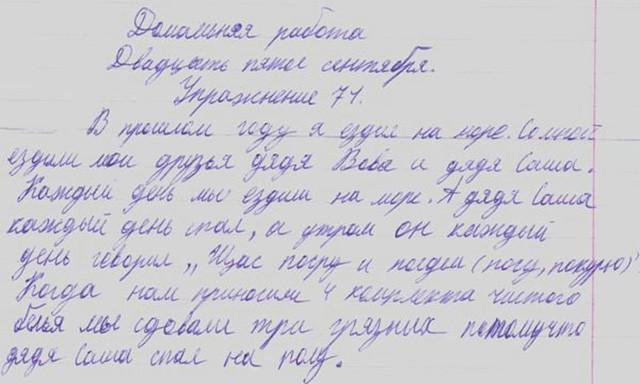 Домашняя работа
Двадцать пятое сентября.
Упражнение 71.
В прошлом году я ездил на море. Со мной
ездили мои друзья дядя Вова и дядя Саша.
Каждый день мы ездили на море. А дядя Саша
каждый день спал, а утром он каждый
день говорил „Щас посру и поедем (посру, покурю)"
Когда нам приносили 4 комплекта чистого
белья мы сдовали три грязных потомучто
дядя Саша спал на полу.